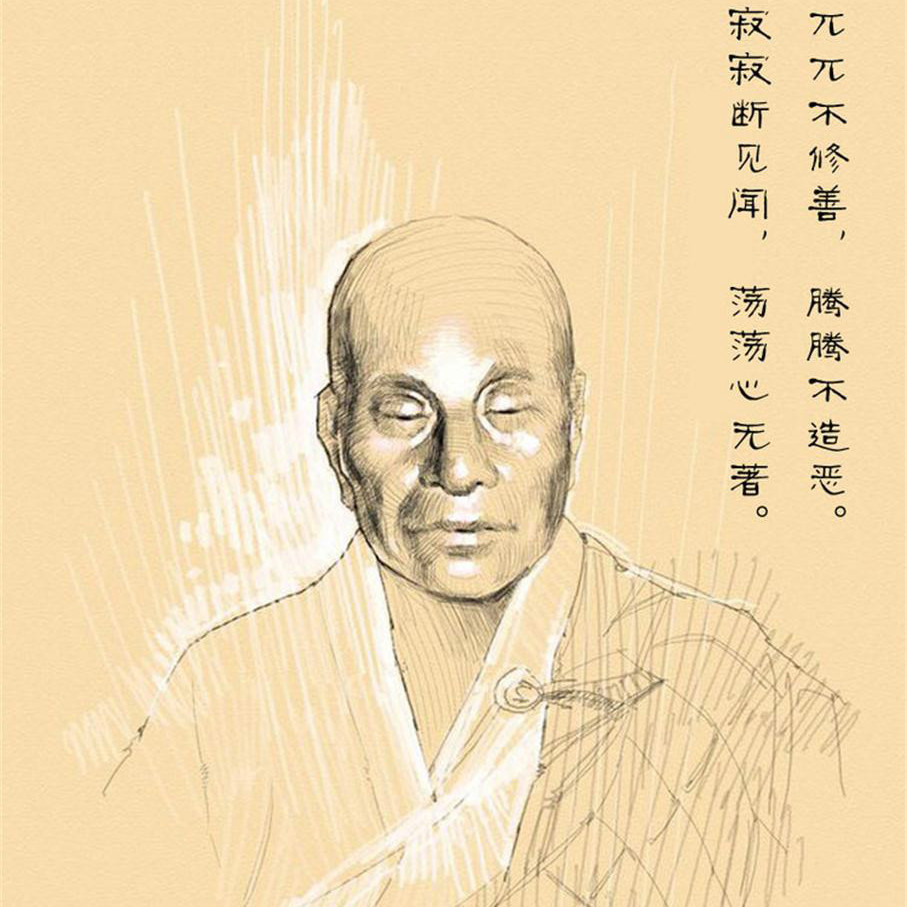 兀兀不修善，腾腾不造恶。
寂寂断见闻，荡荡心无著。